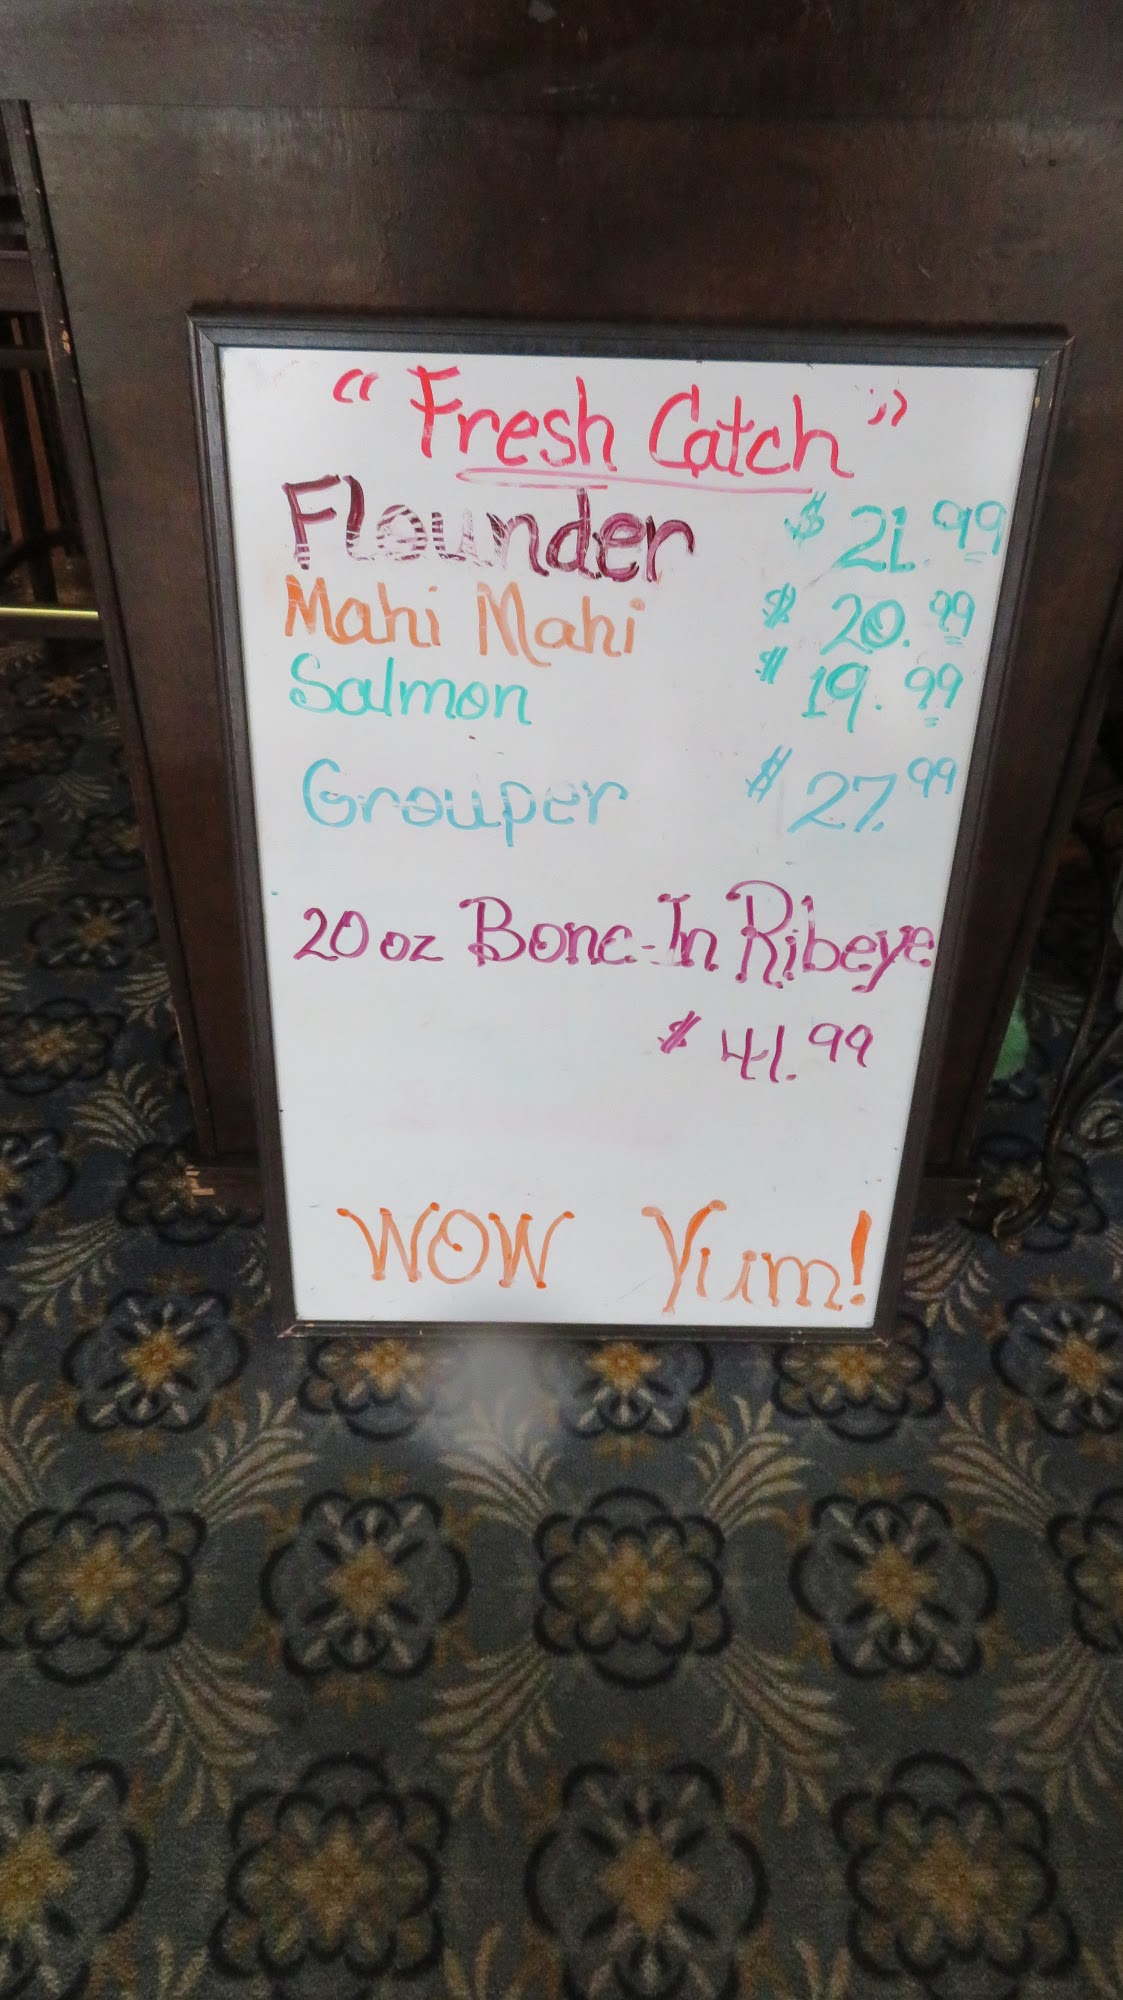 "Fresh Catch"
Flounder $21.99
Mahi Mahi $20.99
Salmon $19.99
Grouper $27.99
20 oz Bone-In Ribeye
$41.99
WOW Yum!